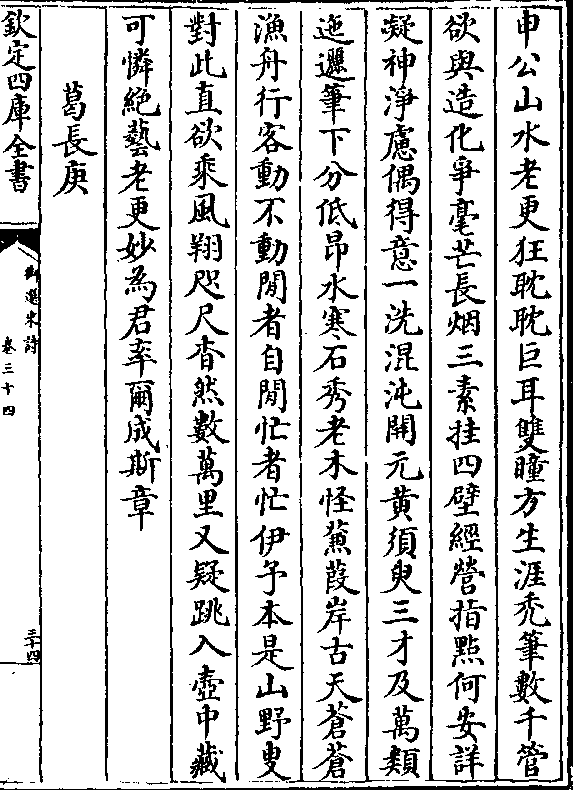 申公山水老更狂耽耽巨耳雙瞳方生涯禿筆數千管
欲與造化爭毫芒長烟三素挂四壁經營指點何安詳
凝神淨慮偶得意一洗混沌開元黃須臾三才及萬類
迤邐筆下分低昂水寒石秀老木怪蒹葭岸古天蒼蒼
漁舟行客動不動閒者自閒忙者忙伊予本是山野叟
對此直欲乘風翔咫尺杳然數萬里又疑跳入壺中藏
可憐絕藝老更妙為君率爾成斯章
葛長庚
欽定四庫全書
御選宋詩
卷三十四
三十四